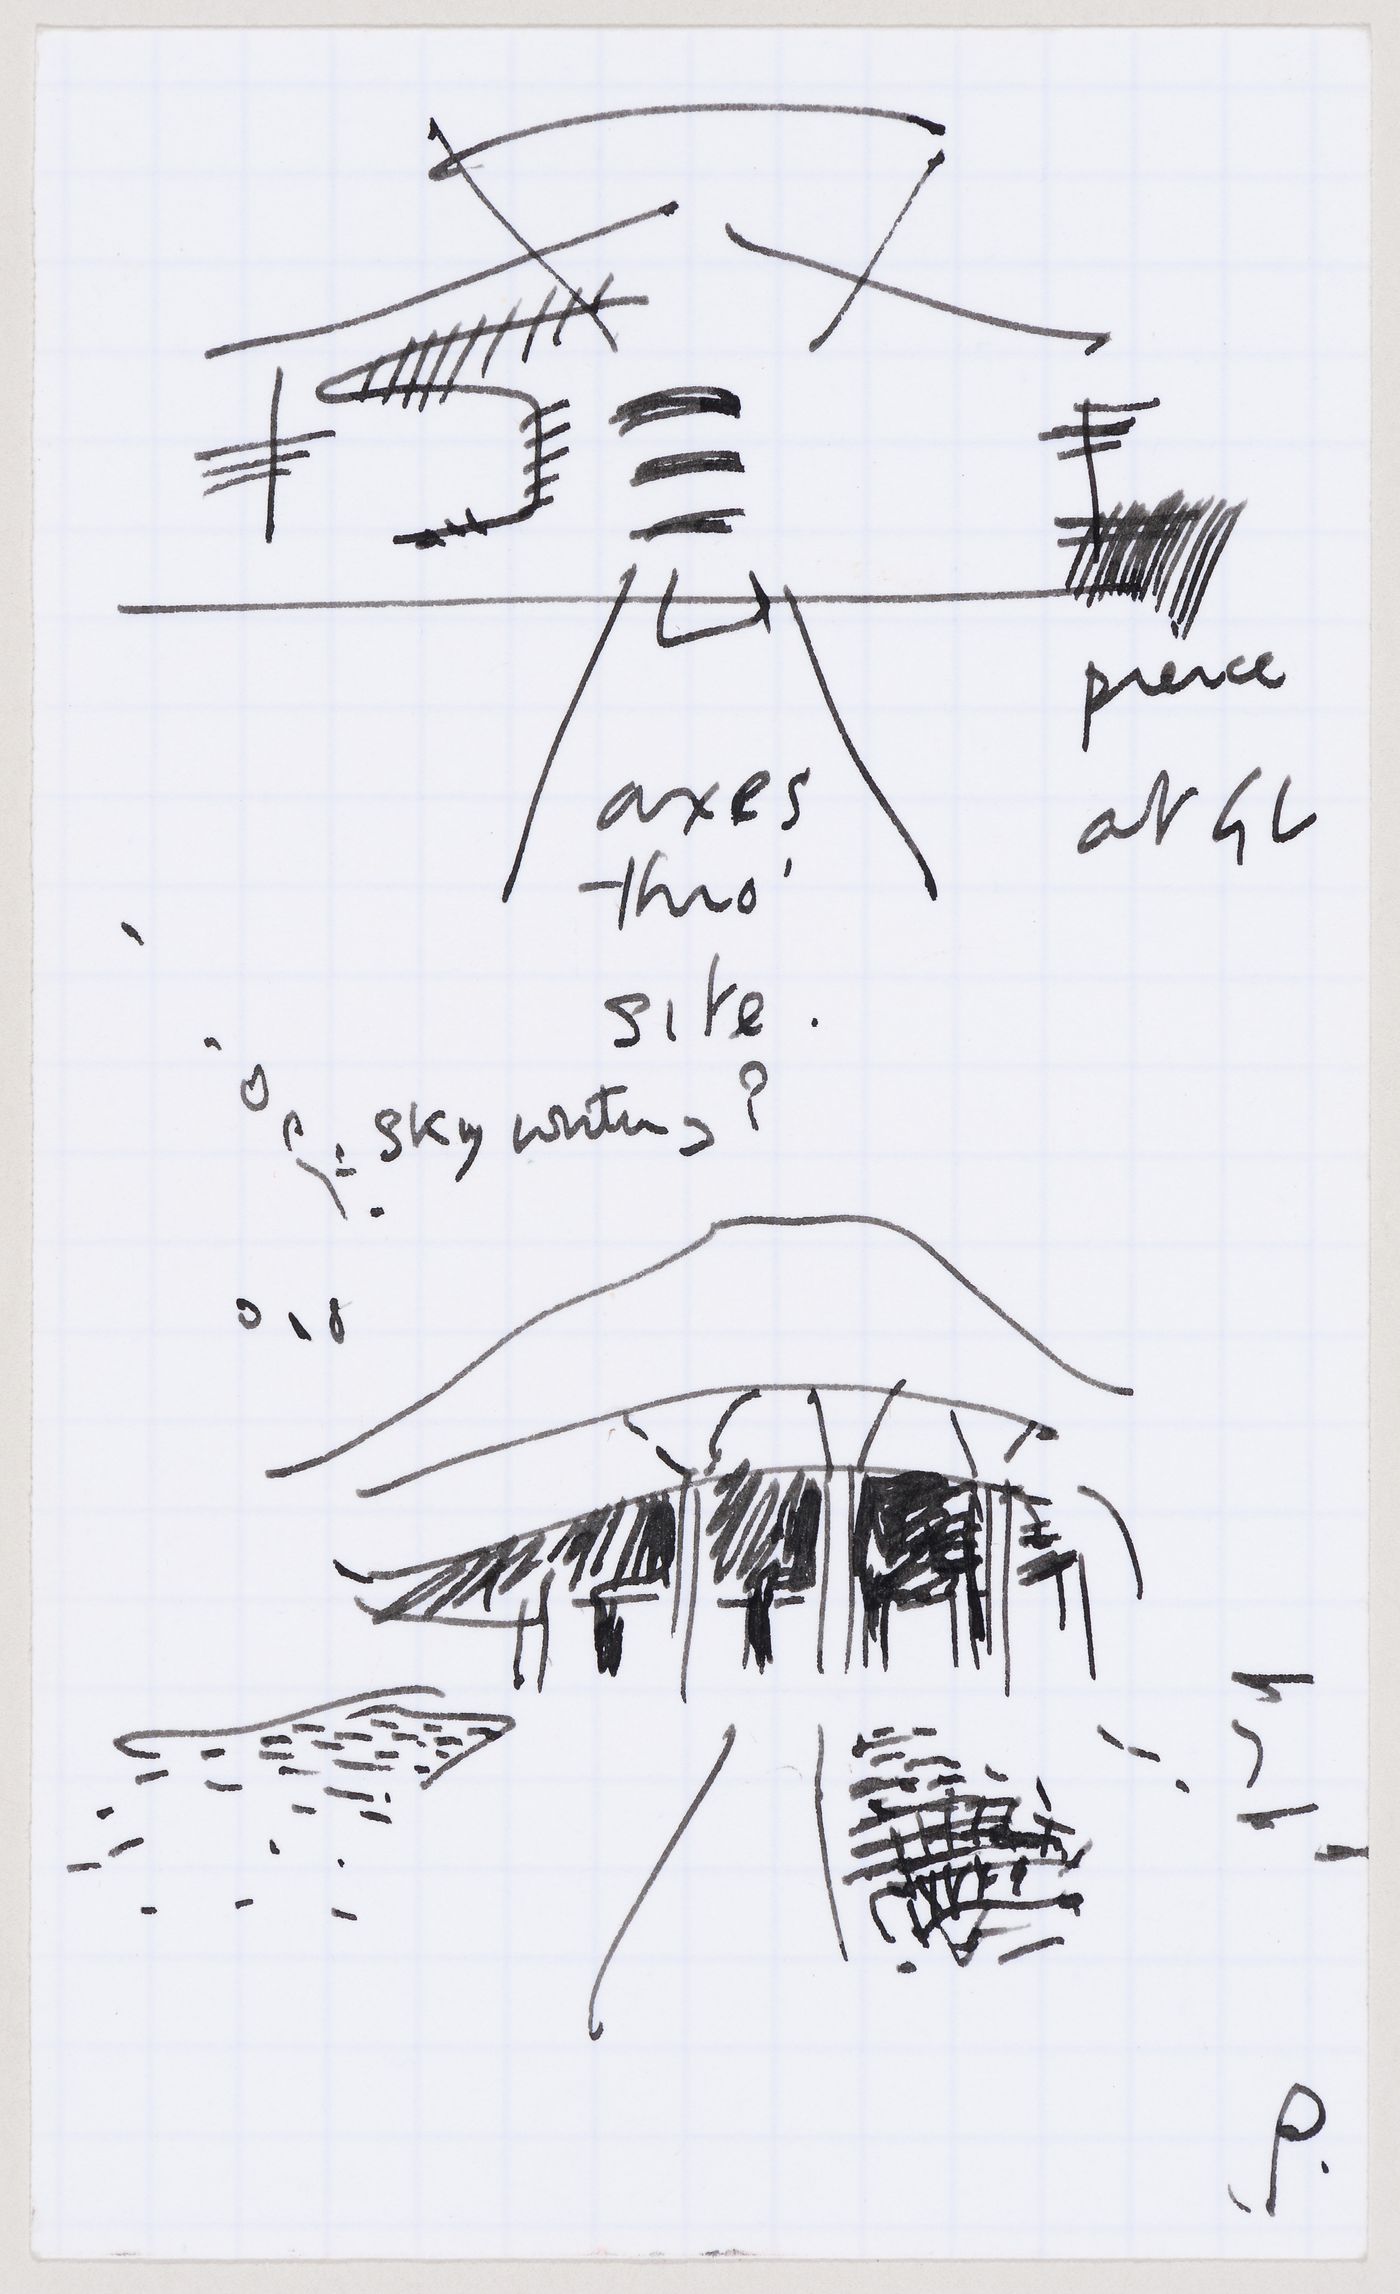 pierce
at GL
axes
thro'
site.
sky writing?
P.